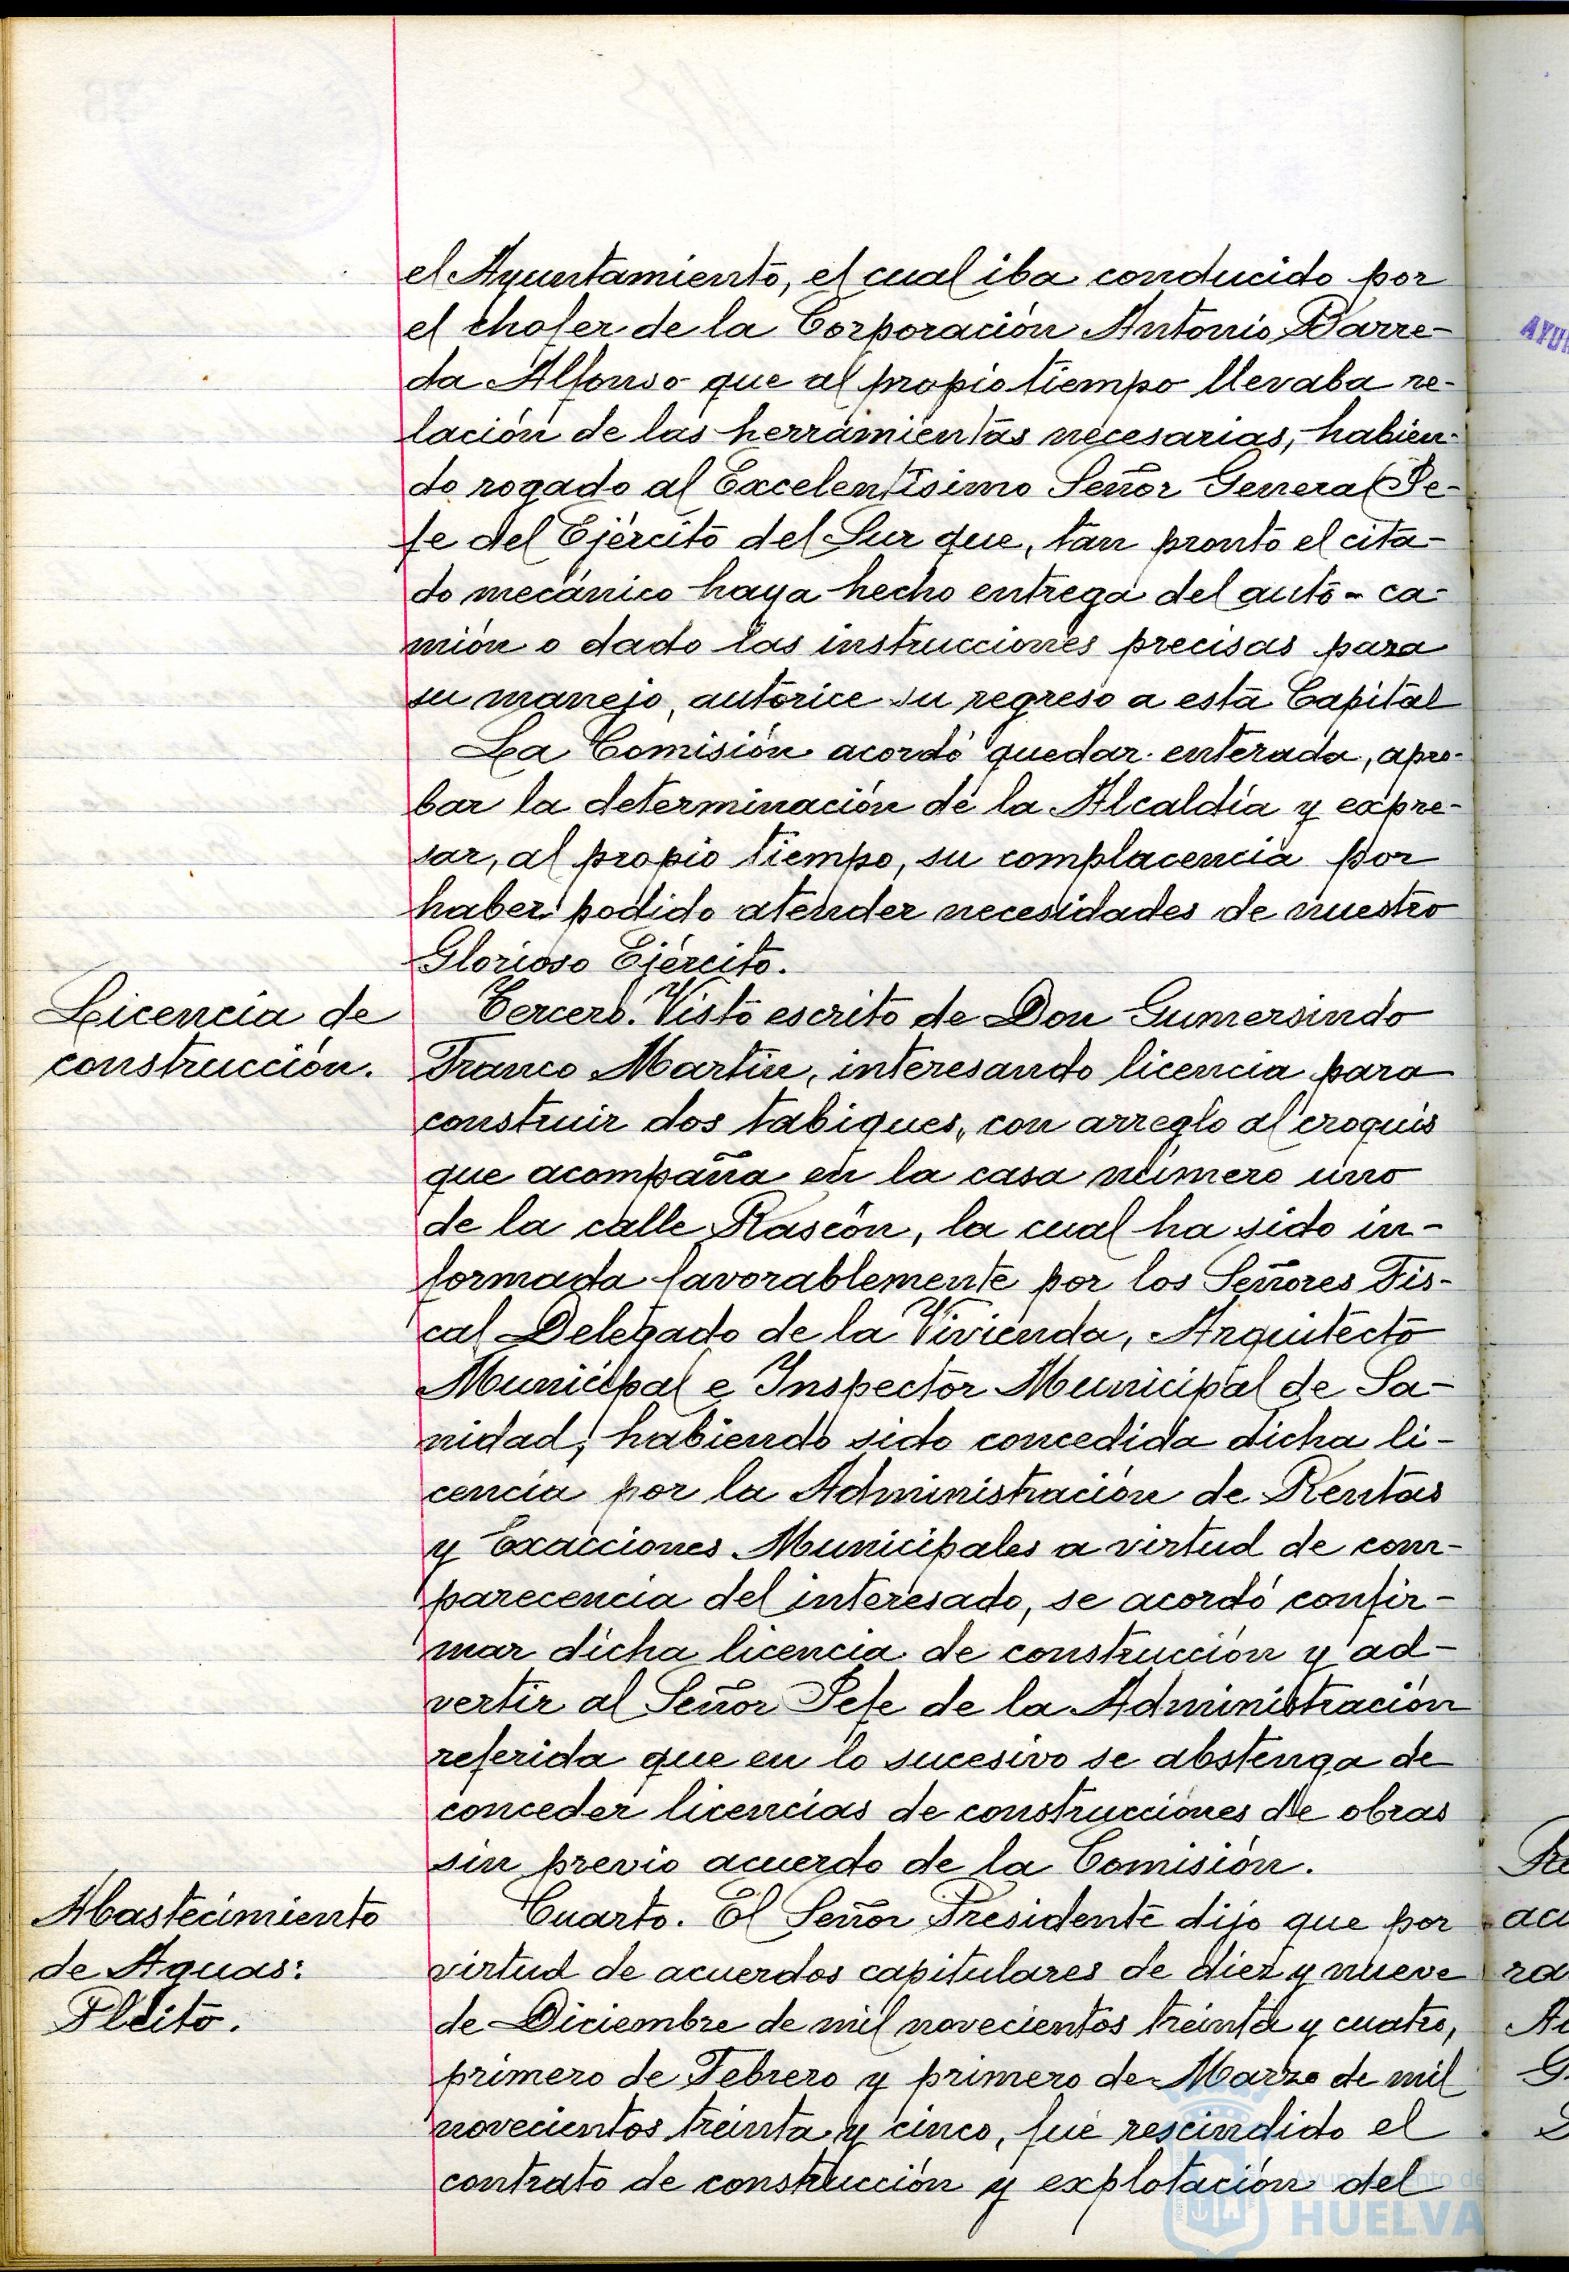 el Ayuntamiento, el cual iba conducido por
el chofer de la Corporación Antonio Barre-
da Alfonso que al propio tiempo llevaba re-
lación de las herramientas necesarias, habien-
do rogado al Excelentísimo Señor General Je-
fe del Ejército del Sur que, tan pronto el cita-
do mecánico haya hecho entrega del auto-ca-
mión o dado las instrucciones precisas para
su manejo, autorice su regreso a esta Capital
La Comisión acordó quedar enterada, apro-
bar la determinación de la Alcaldía y expre-
sar, al propio tiempo, su complacencia por
haber podido atender necesidades de nuestro
Glorioso Ejército.
Licencia de
construcción.
Tercero. Visto escrito de Don Gumersindo
Franco Martín, interesando licencia para
construir dos tabiques, con arreglo al croquis
que acompaña en la casa número uno
de la calle Rascón, la cual ha sido in-
formada favorablemente por los Señores Fis-
cal Delegado de la Vivienda, Arquitecto
Municipal e Inspector Municipal de Sa-
nidad, habiendo sido concedida dicha li-
cencia por la Administración de Rentas
y Exacciones Municipales a virtud de com-
parecencia del interesado, se acordó confir-
mar dicha licencia de construcción y ad-
vertir al Señor Jefe de la Administración
referida que en lo sucesivo se abstenga de
conceder licencias de construcciones de obras
sin previo acuerdo de la Comisión.
Abastecimiento
de Aguas:
Pleito.
Cuarto. El Señor Presidente dijo que por
virtud de acuerdos capitulares de diez y nueve
de Diciembre de mil novecientos treinta y cuatro,
primero de Febrero y primero de Marzo de mil
novecientos treinta y cinco, fué rescindido el
contrato de construcción y explotación del
Ayuntamiento de
HUELVA